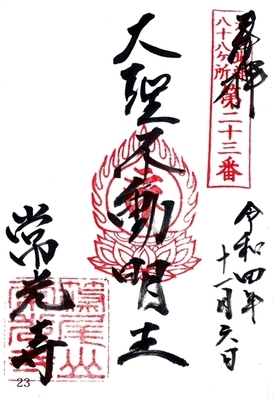 奉拝
八十八ヶ所第二十三番
令和四年
十一月六日
大聖不動明王
常光寺
23